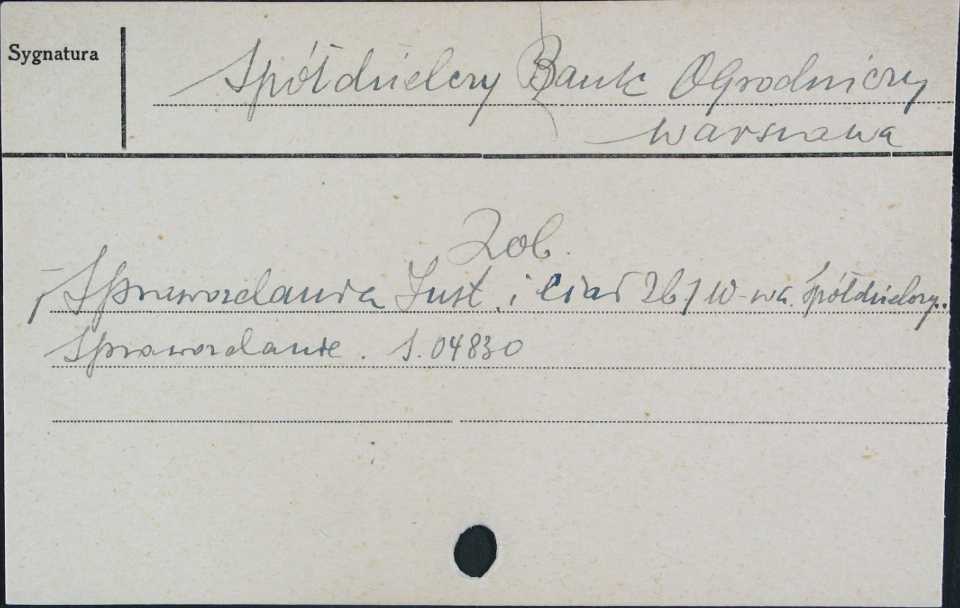 Sygnatura
Spółdzielczy Bank Ogrodniczy
Warszawa
Zob.
Sprawozdania Inst. i Ciał Zb / W-wa. Spółdzielczy..
Sprawozdanie. S. 04830